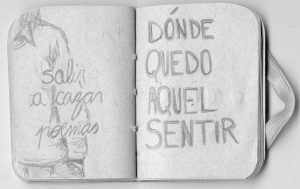 salir
a cazar
poemas
DÓNDE
QUEDO
AQUEL
SENTIR